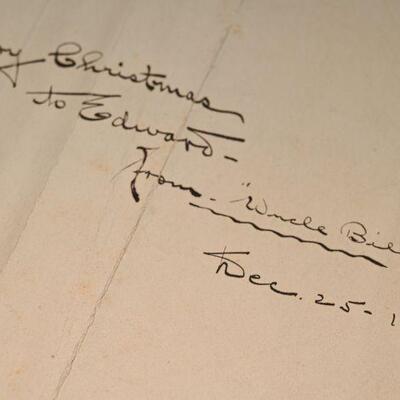 Christmas
to Edward -
from - "Uncle Bil
Dec. 25 - 1